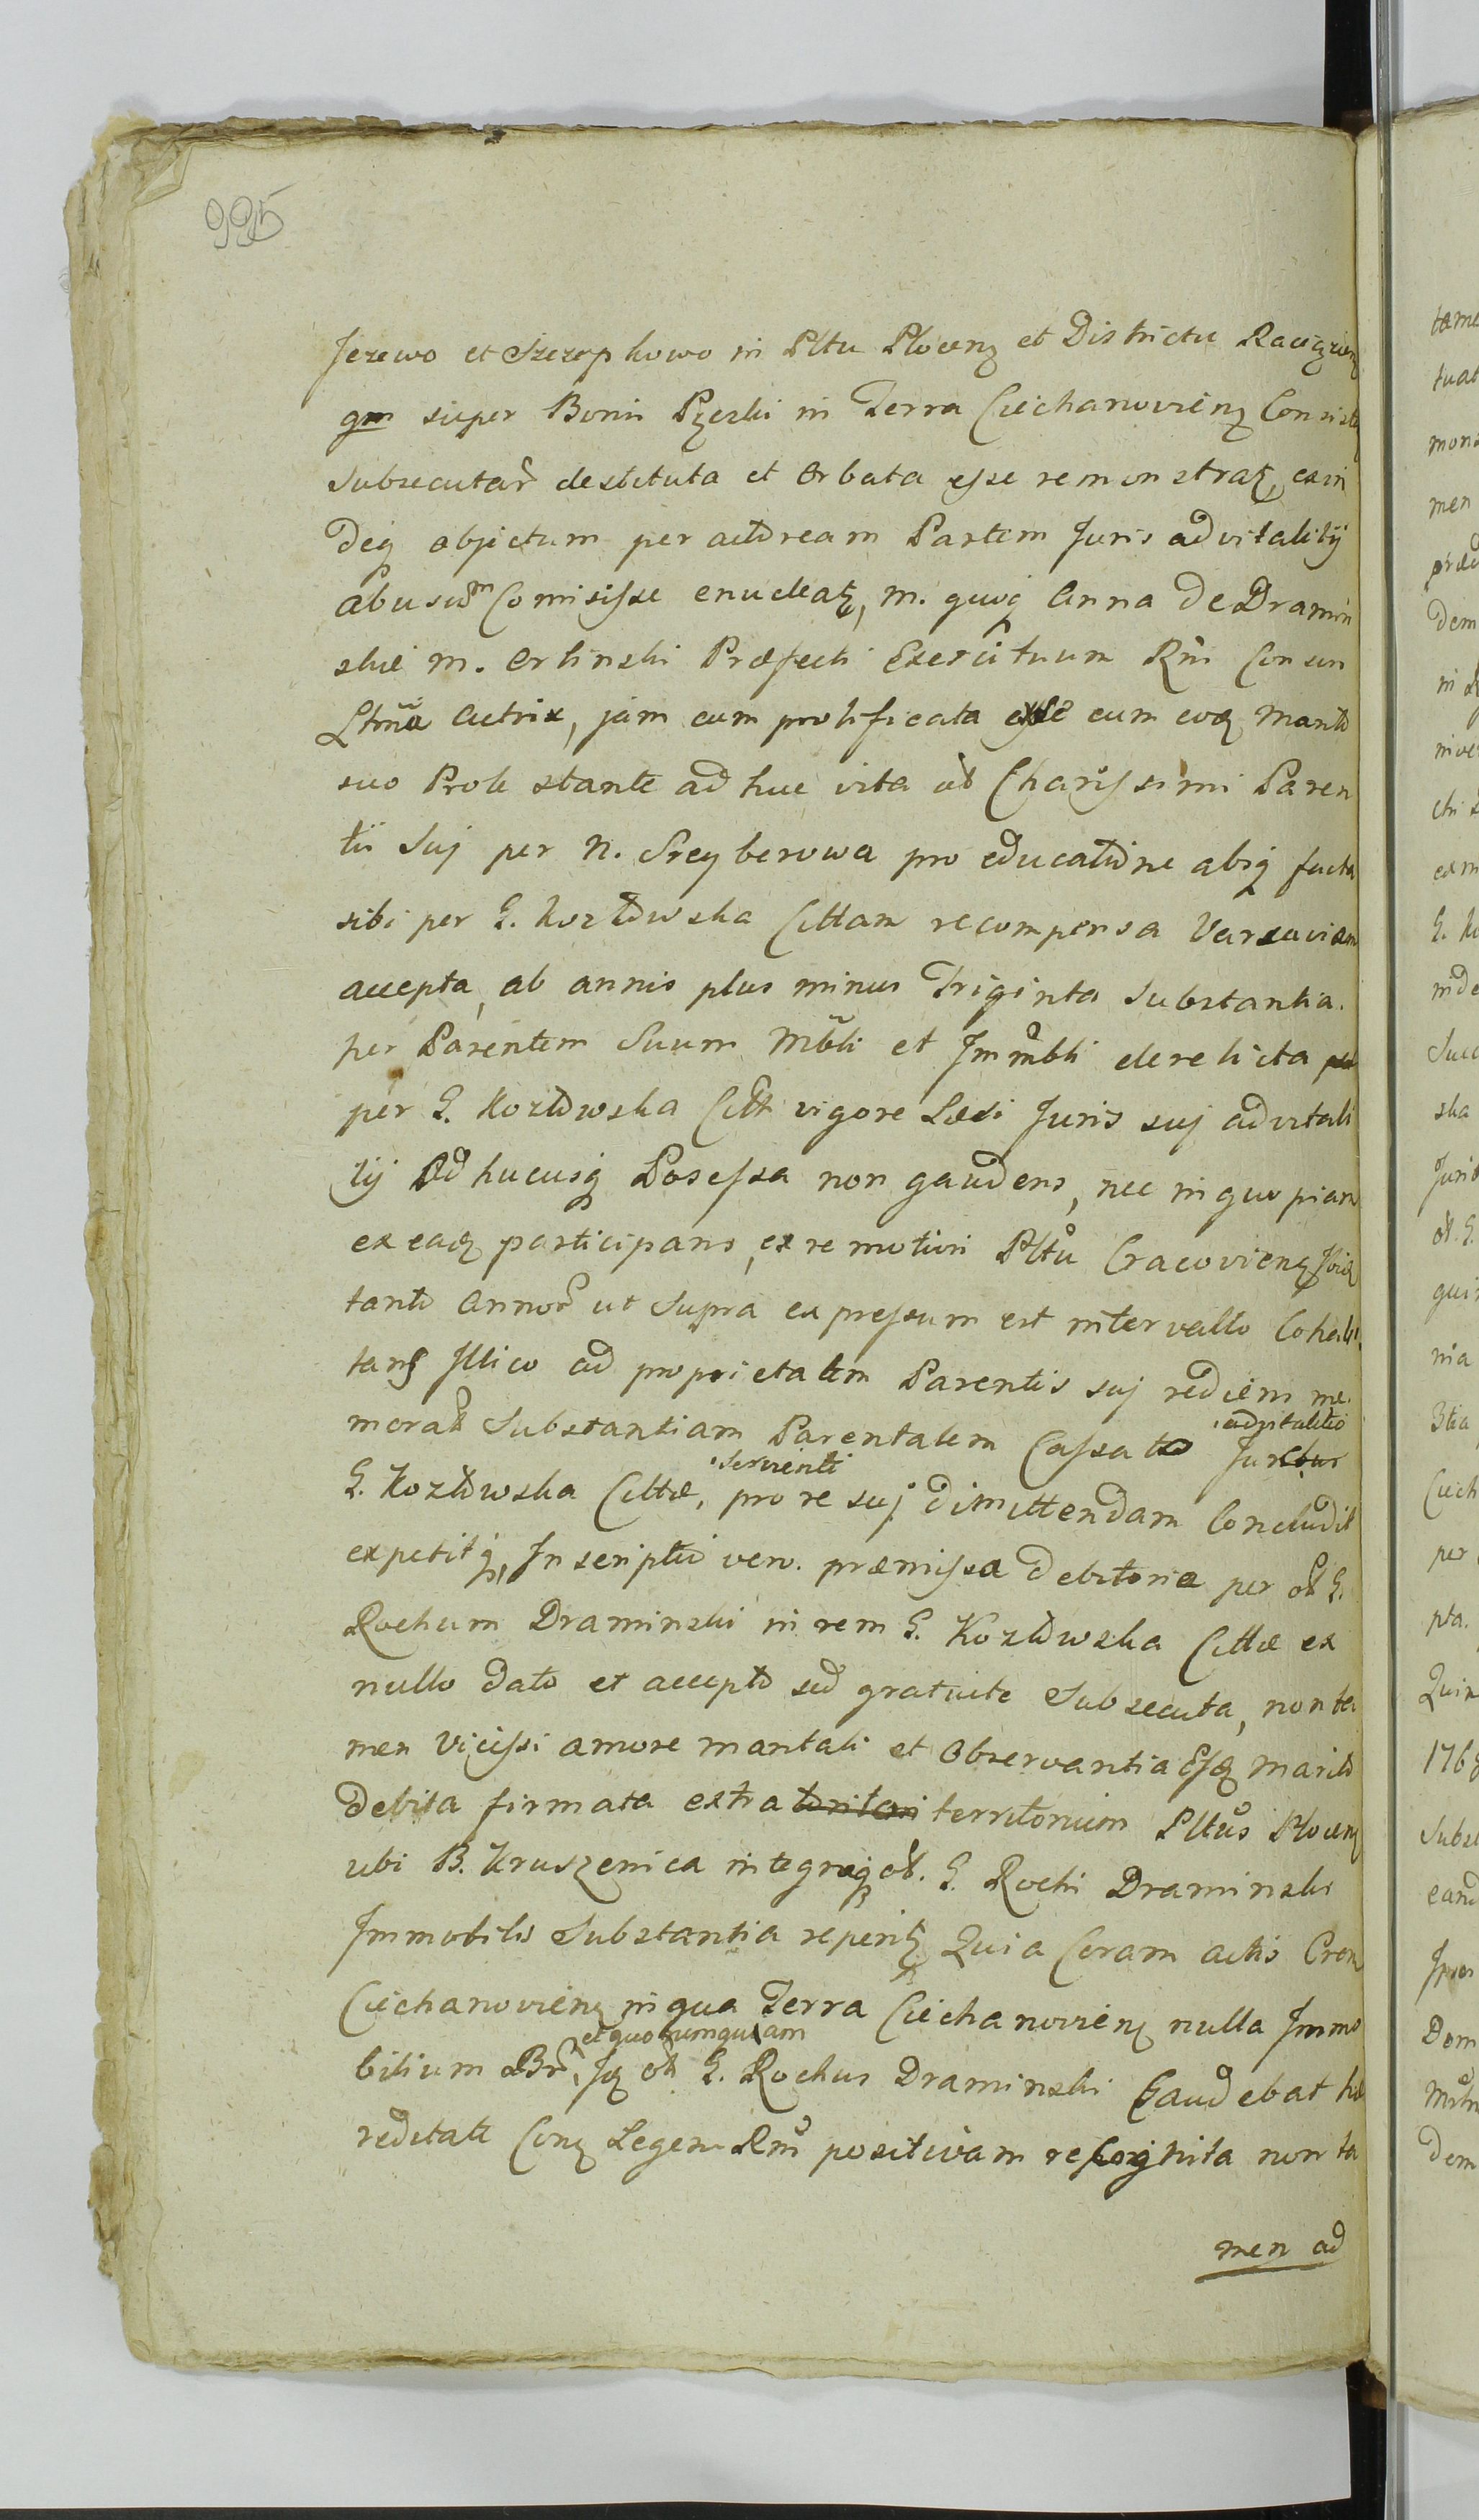 995
Jezewo et Szczepkowo in Pltu Plocenz et District Raciązienz
gm super Bonis Pzeski in Terra Ciechanovienz Consisten
subsecutar destituta et orbata esse remonstratz, exin
deq objectum per actoream Partem Juris advitalitij
abusum Comisisse enucleatz, M. quoq Anna de Dramin
skie M. Orlinski Præfecti Exercituum Rni Consors
Lttma Actrix, jam cum prolificata esse cum eoz marito
suo Prole stante adhuc vita olt Charissimi Paren
tis suj per N. Sreyberowa pro educatione absq facta
sibi per G. Kozłowska Cittam recompensa Varsaviam
accepta, ab annis plus minus Triginta Substantia.
per Parentem Suum Mbli et Immbli derelicta
per G. Kozłowska Citt vigore Læsi Juris suj advitali
tij adhucusq Posessa non gaudens, nec in quopiam
ex eaz participans, ex remotiori Pltu Cracovienz
tanto Annor ut Supra expressum est intervallo Cohabi
tans Illico ad proprietatem Parentis suj rediens me
morat Substantiam Parentalem Cassato advitalitio Jure
G. Kozłowska Cittæ, servienti pro re suj dimittendam Concludit
expetitq, Inscriptio vero. præmissa debitoria per olt G.
Rochum Draminski in rem G. Kozłowska Cittæ ex
nullo dato et accepto sed gratuite Subsecuta, non ta
men vicissi amore maritali et Observantia Esqz Marito
debita firmata extra toritori territorium Pltus Plocenz
ubi B. Kruszenica integraq olt. G. Rochi Draminski
Immobilis Substantia reperitz Quia Coram actis Cren
Ciechanovienz in qua Terra Ciechanovienz nulla Immo
bilium Br, et quorumquam Iz olt G. Rochus Draminski Gaudebat hæ
reditate Conz Legem Rni positivam recognita non ta
men ad